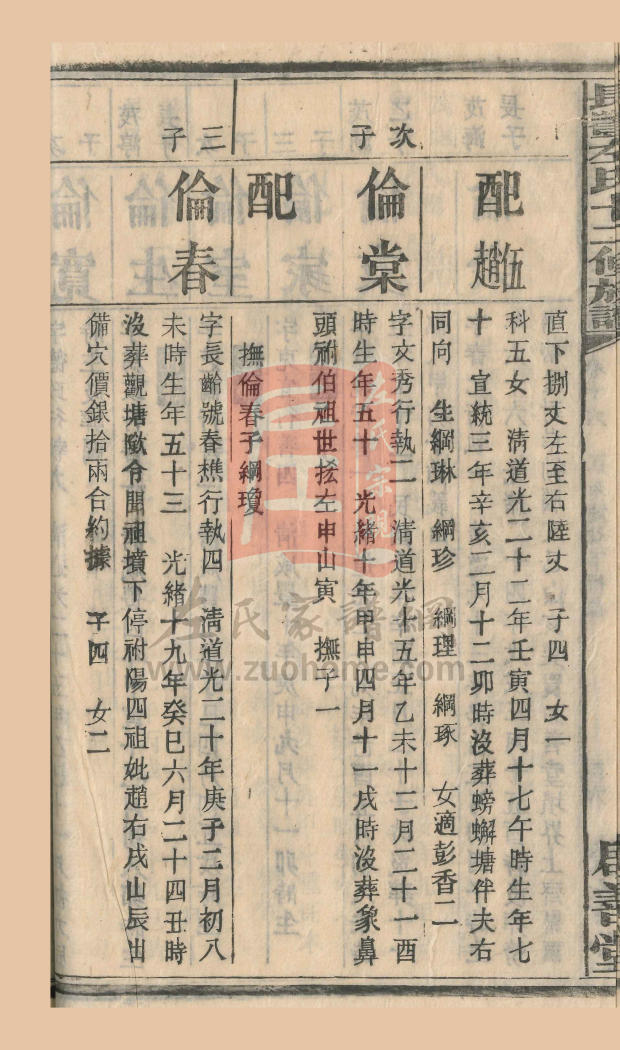 直下捌丈左至右陸丈 子四 女一
配
伍趙
科五女 清道光二十二年壬寅四月十七午時生年七
十 宣統三年辛亥二月十二卯時沒葬螃蠏塘伴夫右
同向 生綱琳 綱珍 綱理 綱琢 女適彭香二
次子
倫棠
字文秀行執二 清道光十五年乙未十二月二十一酉
時生年五十 光緒十年甲申四月十一戌時沒葬象鼻
頭祔伯祖世拡左申山寅 撫子一
配
撫倫春子綱瓊
三子
倫春
字長齡號春樵行執四 清道光二十年庚子二月初八
未時生年五十三 光緒十九年癸巳六月二十四丑時
沒葬觀塘墈令開祖墳下停祔陽四祖妣趙右戌山辰出
備穴價銀拾兩合約據 子四 女二
左氏十二修族譜
善堂
左氏家譜網
www.zuohome.com